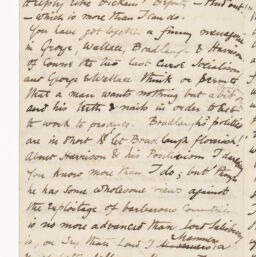 to reply like Dickens' Deputy — "
— which is more than I can do.
You have got together a funny menagerie
in George, Wallace, Bradlaugh & Harrison.
Of course the two last curse Socialism
and George & Wallace think or permit
that a man wants nothing but a
and his teeth & nails in order to set
to work to produce. Bradlaugh's politics
are in short to let Bradlaugh flourish!
About Harrison & his Positivism I
you know more than I do; but though
he has some wholesome views against
the exploitage of barbarous countries
is no more advanced than Lord Salisbury
is, or say than Lord J. Manners; a